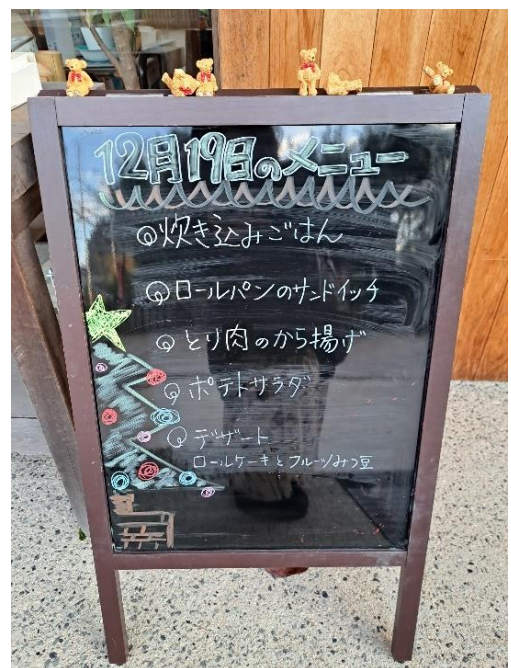 12月19日のメニュー
◎炊き込みごはん
◎ロールパンのサンドイッチ
◎とり肉のから揚げ
◎ポテトサラダ
◎デザート
ロールケーキとフルーツみつ豆